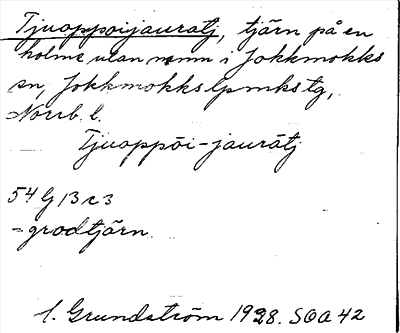 Tjuoppoijauratj, tjärn på en
holme utan namn i Jokkmokks
sn, Jokkmokks lpmkstg,
Norrb. l.
Tjuoppōi-jaurātj
54 G 13 c 3
= grodtjärn.
f. Grundström 1928. SOA 42